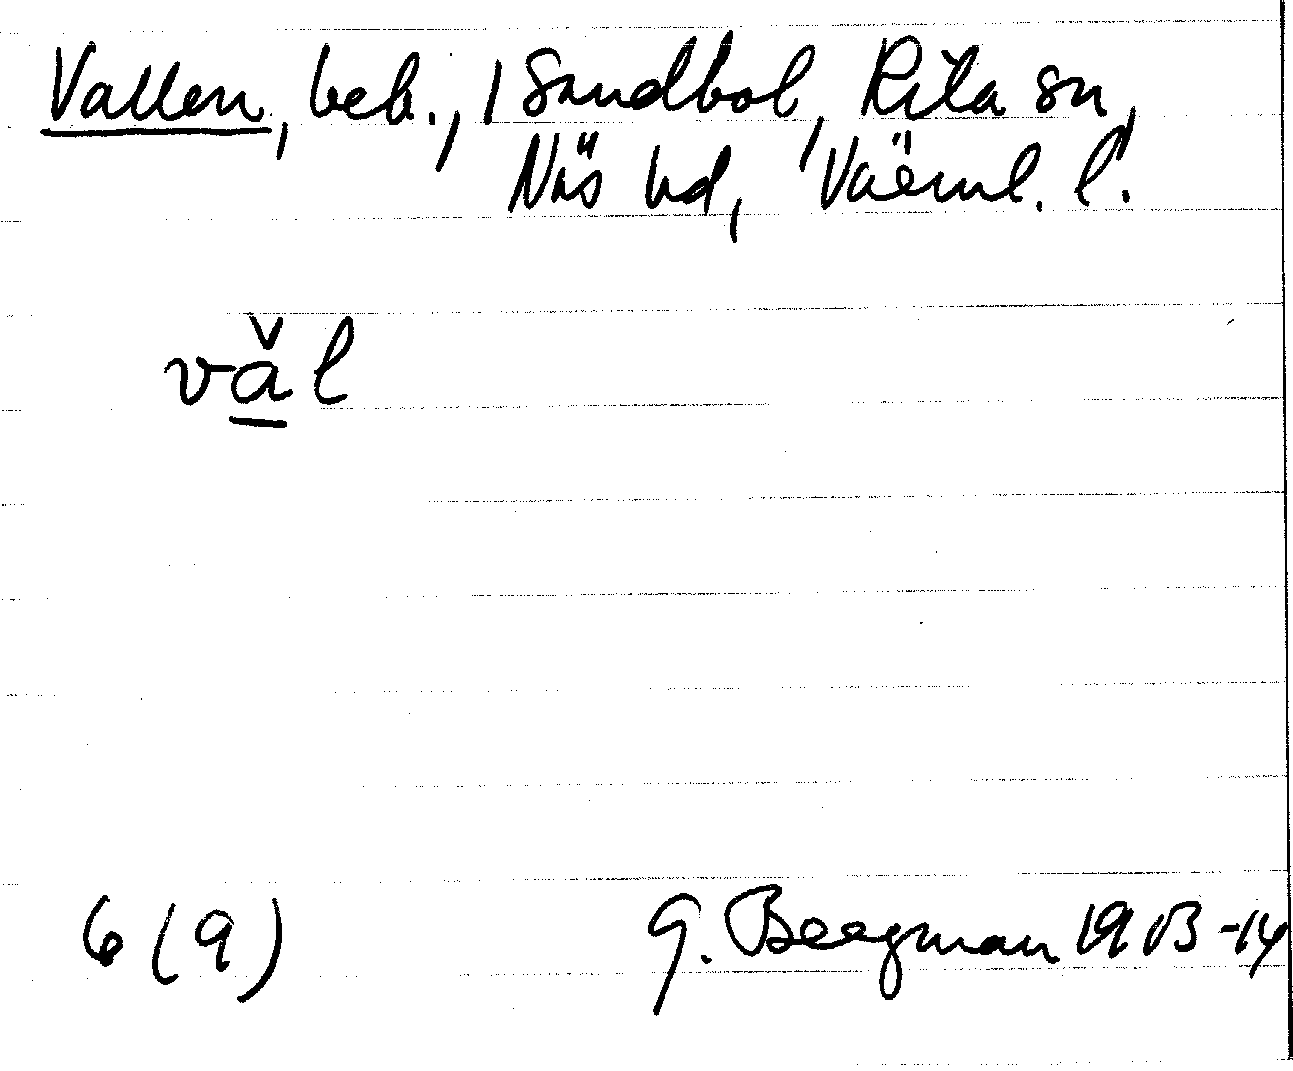 Vallen, beb., i Sandbol, Kila sn,
Näs hd, Värml. l.
vǎ̱l
6 (9)
G. Bergman 1913-14